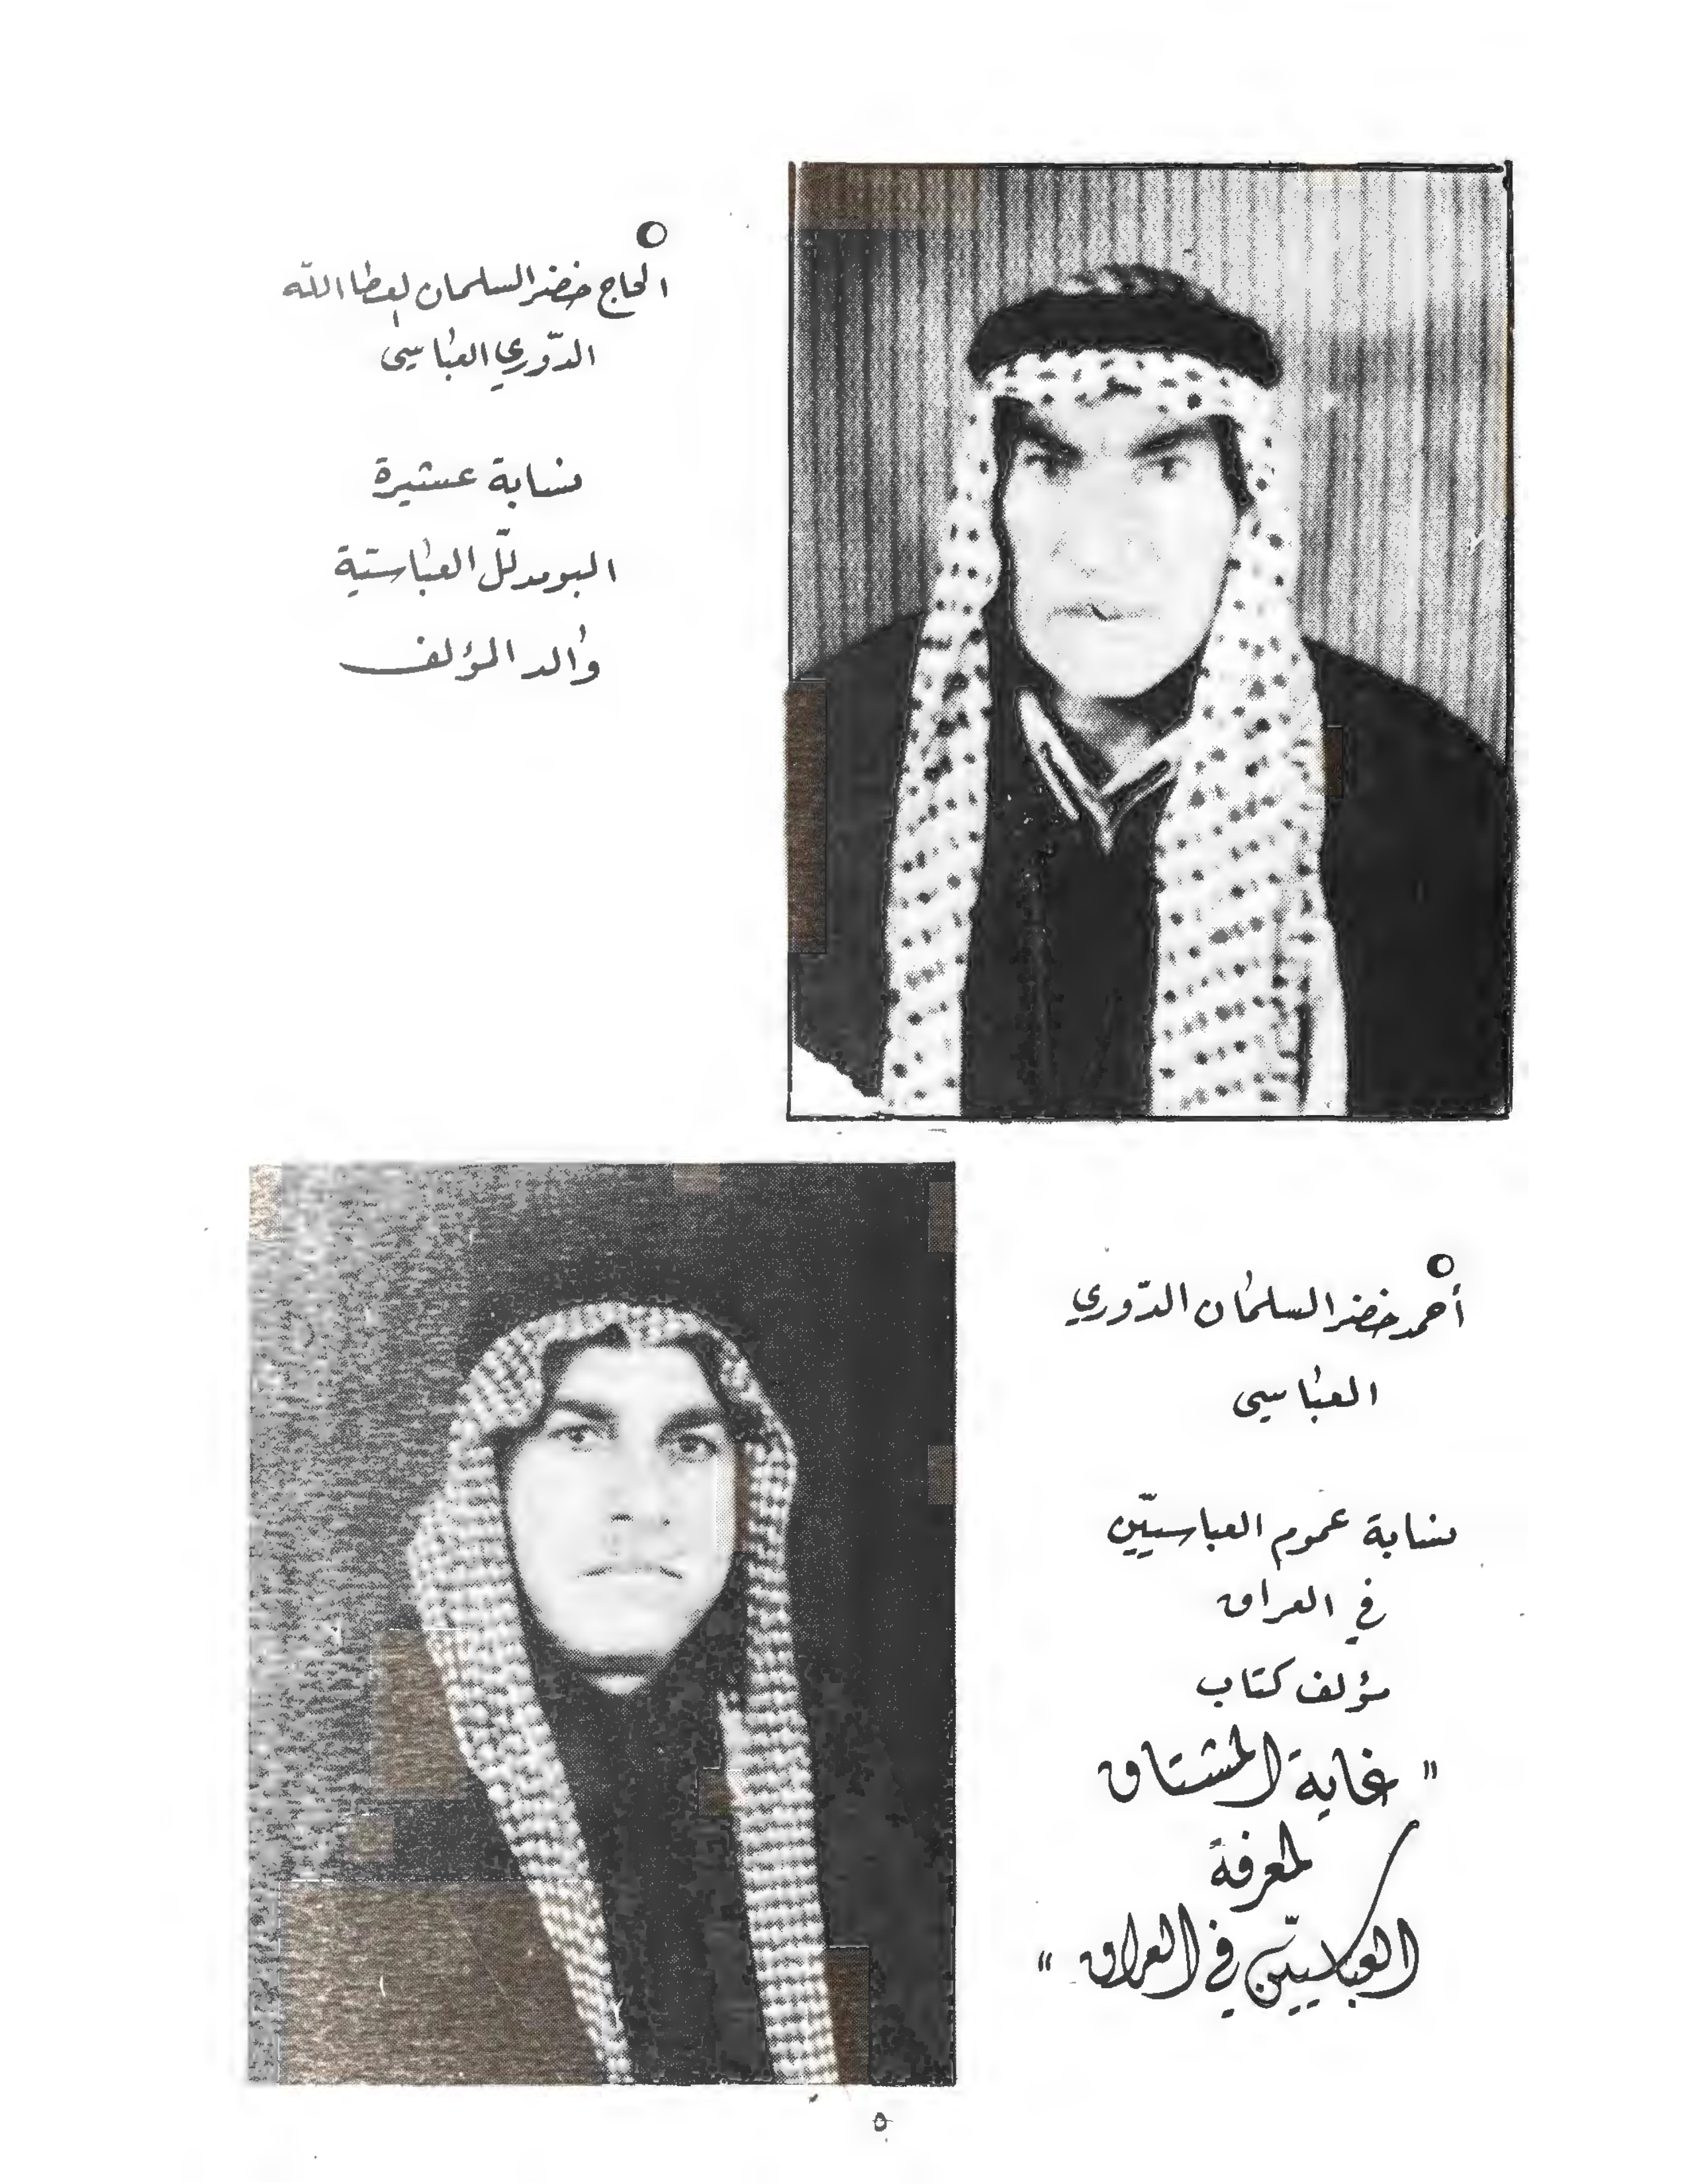 الحاج خضر السلمان العطا الله
الدّوري العبّاسي
نسابة عشيرة
البو مدلّل العبّاسيّة
والد المؤلف
أحمد خضر السلمان الدّوري
العبّاسي
نسابة عموم العباسيّين
في العراق
مؤلف كتاب
" غاية المشتاق
لمعرفة
العباسيّين في العراق "
٥